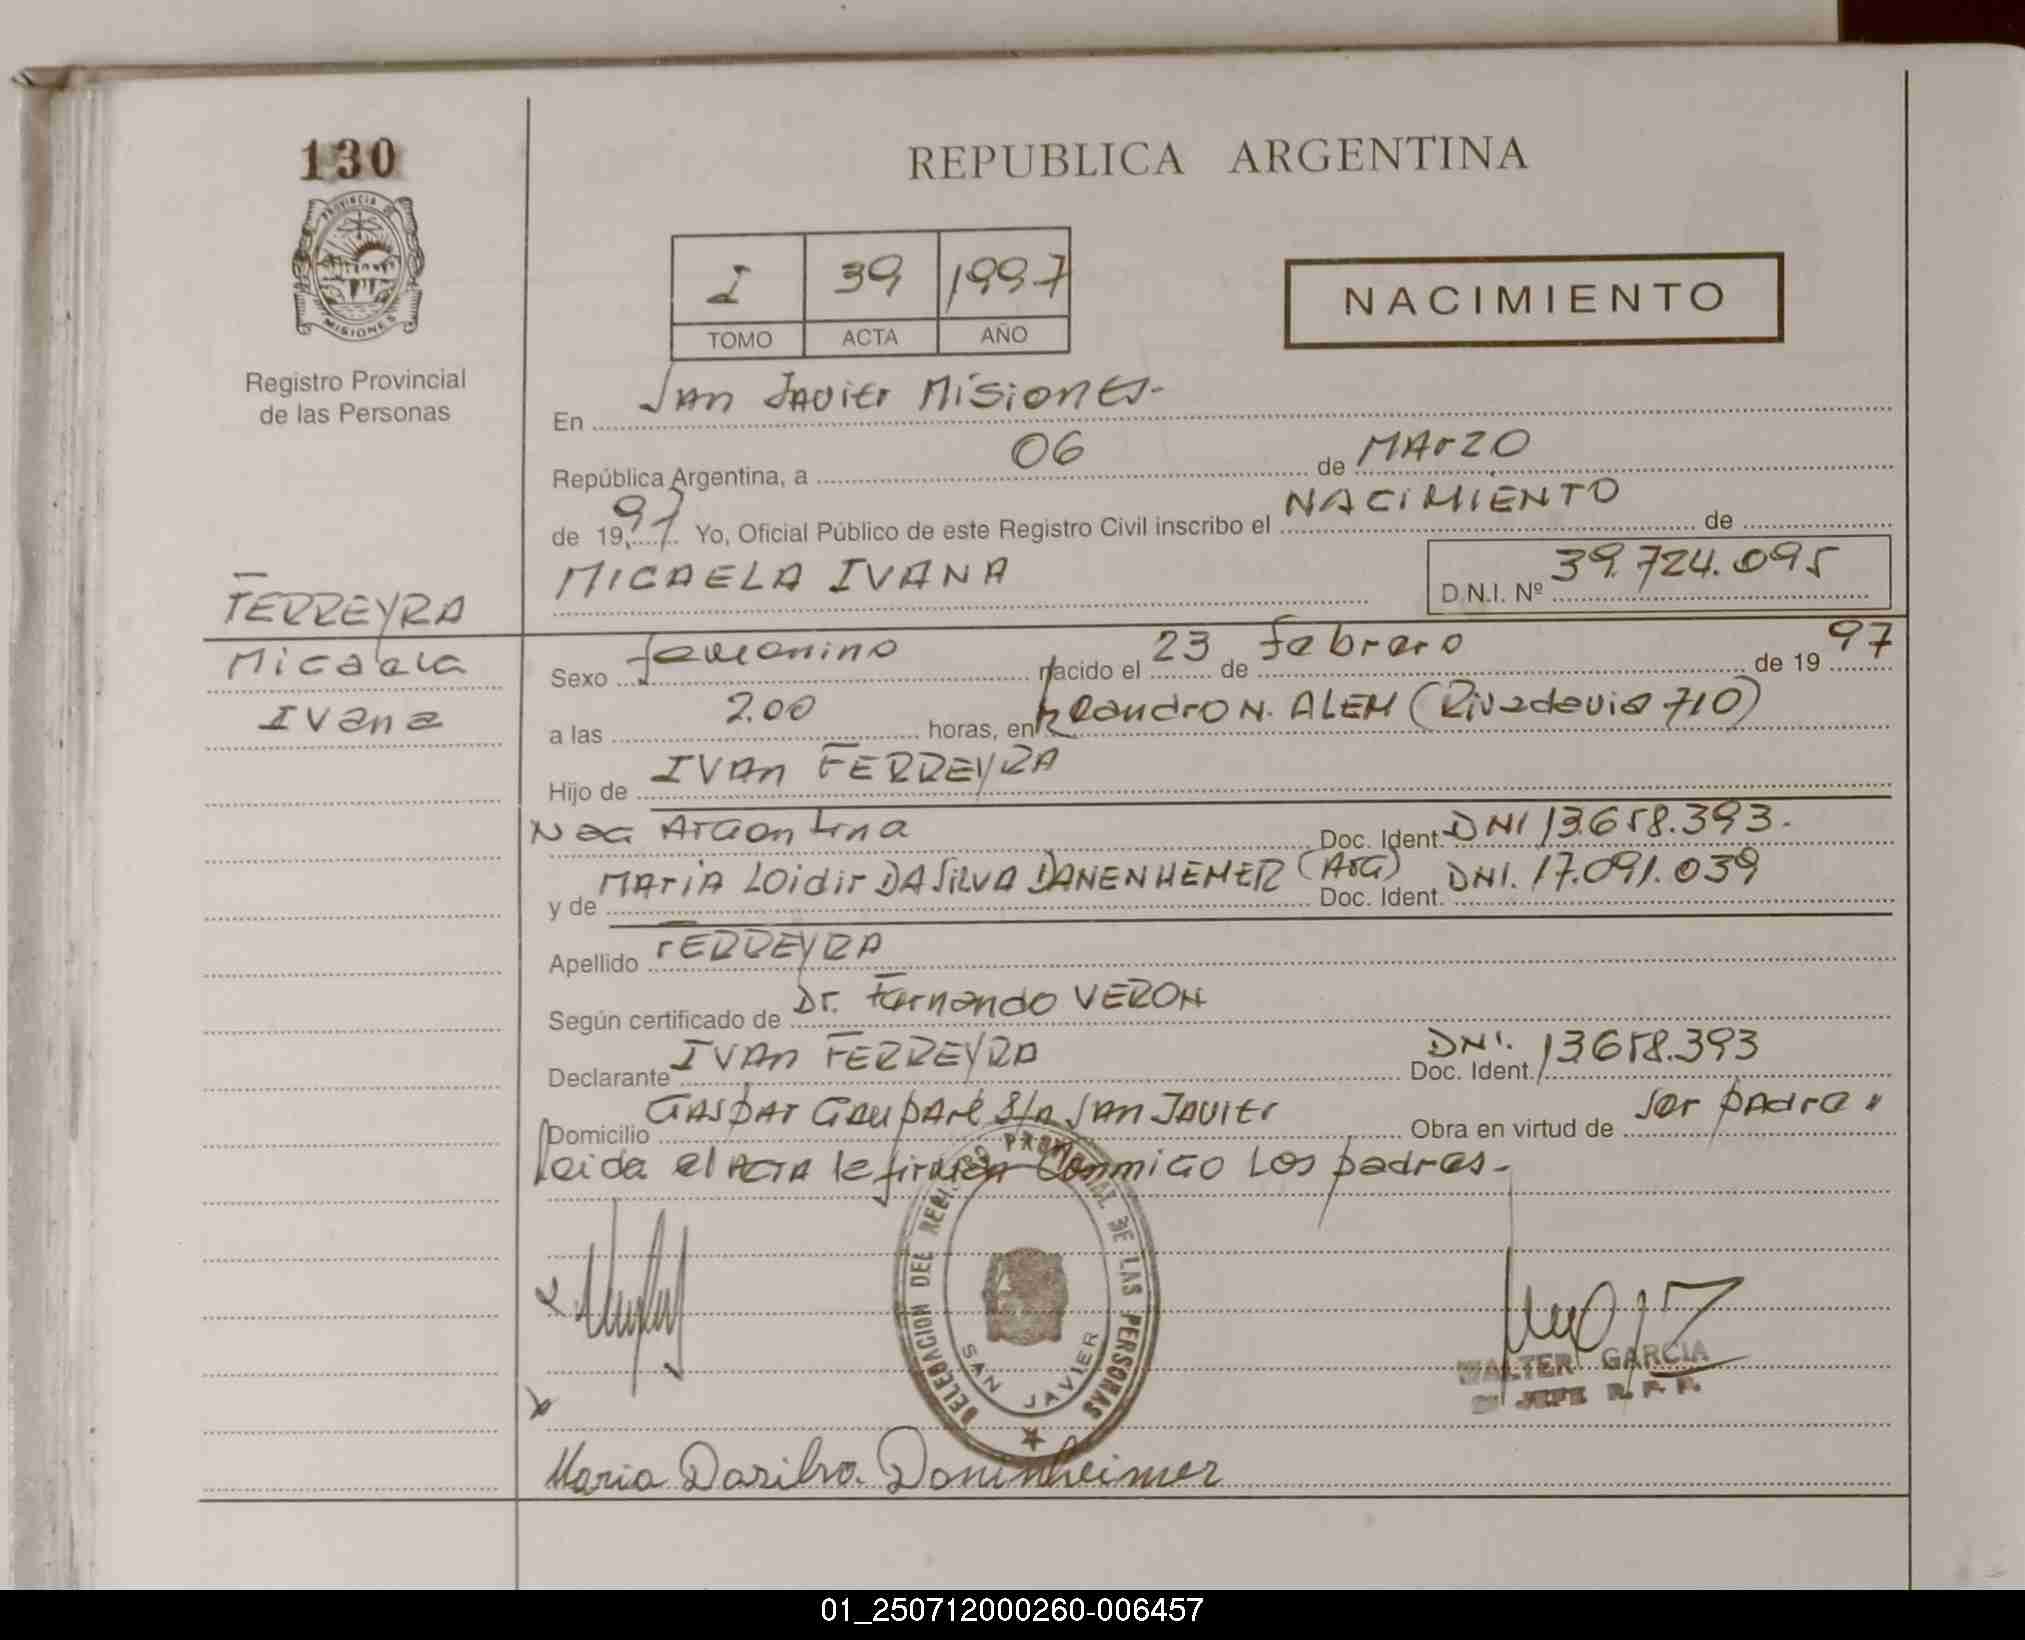 130
PROVINCIA DE
MISIONES
Registro Provincial
de las Personas
REPUBLICA ARGENTINA
I 39 1997
TOMO ACTA AÑO
NACIMIENTO
En San Javier Misiones.-
República Argentina, a 06 de Marzo
de 19 97 Yo, Oficial Público de este Registro Civil inscribo el NACIMIENTO de
MICAELA IVANA
D.N.I. Nº 39.724.095
FERREYRA
Micaela
Ivana
Sexo femenino nacido el 23 de febrero de 19 97
a las 2.00 horas, en Leandro N. ALEM (Rivadavia 710)
Hijo de IVAN FERREYRA
Nac Argentina Doc. Ident. DNI 13.658.393.
y de MARIA LOidir DA SILVA DANENHEMER (Arg) Doc. Ident. DNI. 17.091.039
Apellido FERREYRA
Según certificado de Dr. Fernando VERON
Declarante IVAN FERREYRA Doc. Ident. DNI. 13658.393
Domicilio GASPAR S/n San Javier Obra en virtud de ser padre
Leida el ACTA le firman Conmigo Los padres.-
DELEGACION DEL REGISTRO PROVINCIAL DE LAS PERSONAS
SAN JAVIER
WALTER GARCIA
JEFE R. P. P.
Maria Dasilva. Daninheimer
01_250712000260-006457